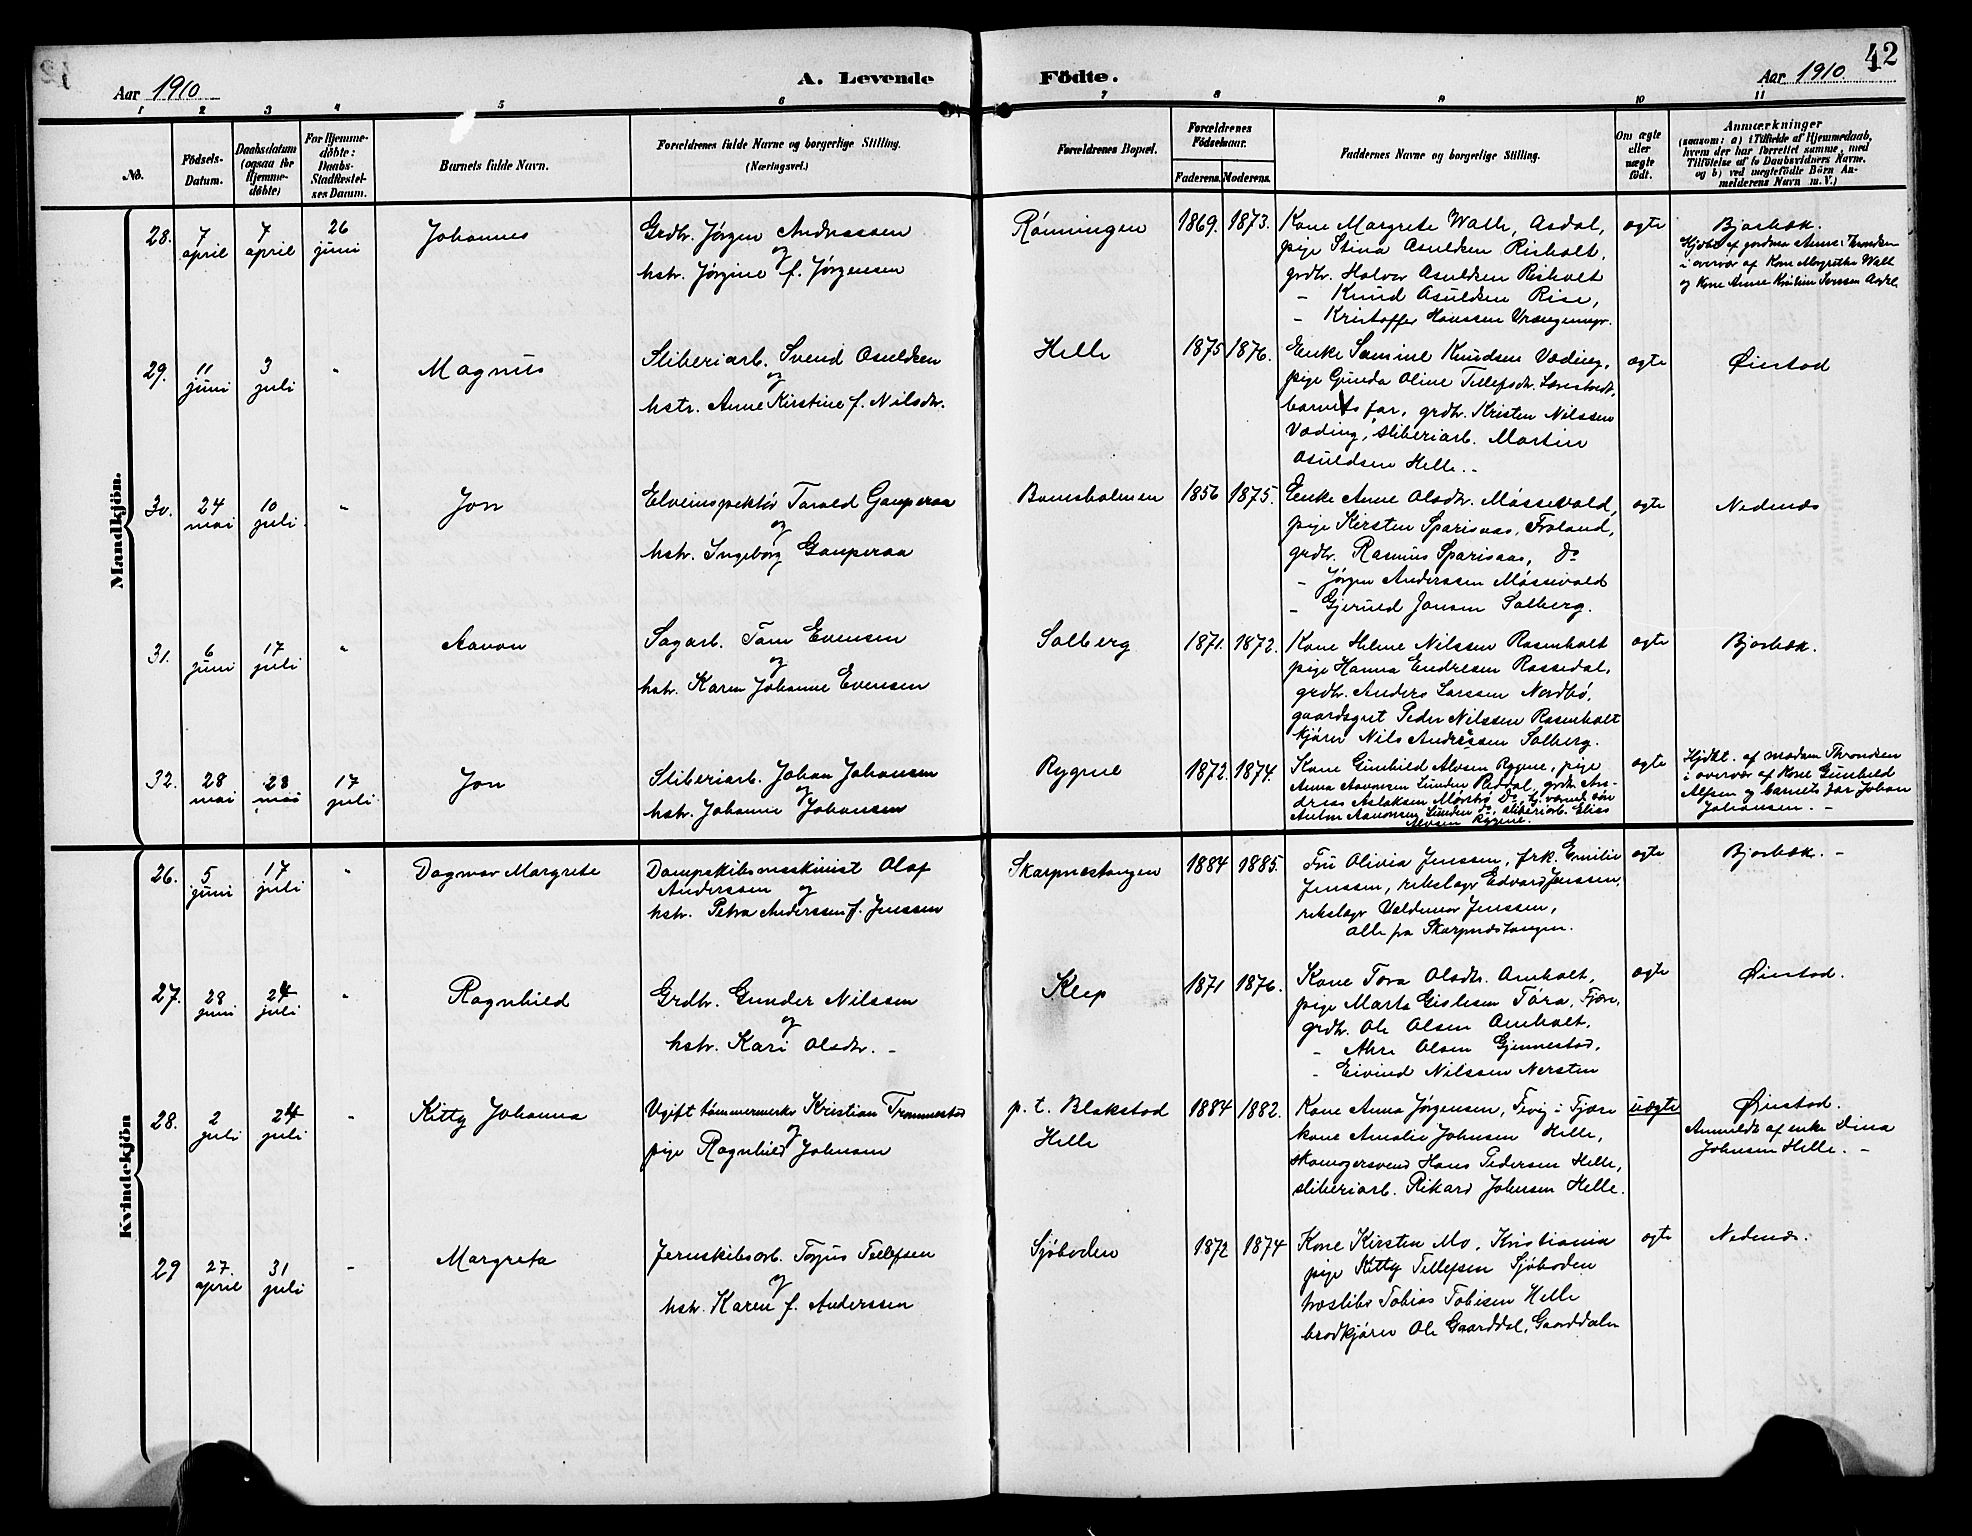 42
A. Levende Födte.
Aar 1910
Aar 1910
1 2 3 4 5 6 7 8 9 10 11
No.
Födsels-
Datum.
Daabsdatum
(ogsaa for
Hjemme-
døbte)
For Hjemme-
døbte:
Daabs-
Stadfæstel-
ses Datum.
Barnets fulde Navn.
Forældrenes fulde Navne og borgerlige Stilling.
(Næringsvei.)
Forældrenes Bopæl.
Forældrenes
Födselsaar.
Faderens. Moderens.
Faddernes Navne og borgerlige Stilling.
Om ægte
eller
uægte
födt.
Anmærkninger
(saasom: a) i Tilfælde af Hjemmedaab,
hvem der har forrettet samme, med
Tilföielse af to Daabsvidners Navne,
og b) ved uægtefödte Börn An-
melderens Navn m. V.)
Mandkjön.
28. 7 april 7 april 26 juni Johannes
Grdbr. Jørgen Andreassen
og
hstr. Jørgine f. Jørgensen
Rønningen 1869. 1873.
Kone Margrete Walle, Asdal,
pige Stina Osuldsen Risholt,
grdbr. Halvor Osuldsen Risholt
- Knud Osuldsen Rise,
- Kristoffer Hanssen
ægte Bjorbæk.
Hjdbt af jordmor Anne Throndsen
i overvær af Kone Margrethe Walle
og Kone Anne Kristine Jenssen Asdal
29. 11 juni 3 juli " Magnus
Sliberiarb. Svend Osuldsen
og
hstr. Anne Kirstine f. Nilsdtr.
Helle 1875 1876.
Enke Samine Knudsen Væding,
pige Gunda Oline Tellefsdtr.
barnets far, grdbr. Kristen Nilssen
Væding, sliberiarb. Martin
Osuldsen Helle. -
ægte Øiestad
30. 24 mai 10 juli. " Jon
Elveinspektør Tarald Gauperaa
og
hstr. Ingeborg Gauperaa
Bomsholmen 1856 1875.
Enke Anne Olsdtr. Møssevold,
pige Kirsten Sparisaas, Froland,
grdbr. Rasmus Sparisaas, Do
- Jørgen Anderssen Møssevold
- Gjeruld Jonsen Solberg.
ægte Nedenæs
31. 6 juni 17 juli " Aanon
Sagarb. Tom Evensen
og
hstr. Karen Johanne Evensen
Solberg 1871. 1872.
Kone Helene Nilssen Rosenholt
pige Hanna Endresen Rossedal,
grdbr. Anders Larssen Nordbø,
gaardsgut Peder Nilssen Rosenholt
kjører Nils Andreassen Solberg.
ægte Bjorbæk.
32. 28 mai 28 mai 17 juli Jon
Sliberiarb. Johan Johansen
og
hstr. Johanne Johansen
Rygene 1872. 1874.
Kone Gunhild Alvsen Rygene, pige
Anna Aanonsen Lunden Reddal, grdbr. An-
dreas Aslaksen Mørebø, Do,
Anton Aanonsen Lunden Do, sliberiarb. Elias
Alvsen Rygene.
ægte Hjdbt. af madam Throndsen
i overvær af Kone Gunhild
Alfsen og barnets far Johan
Johansen. -
Kvindekjön
26. 5 juni 17 juli " Dagmar Margrete
Dampskibsmaskinist Olaf
Anderssen og
hstr. Petra Anderssen f. Jenssen
Skarpnestangen 1884 1885.
Fru Olivia Jenssen, frk. Emilie
Jenssen, Edvard Jenssen,
Valdemar Jenssen,
alle fra Skarpnæstangen.
ægte Bjorbæk. -
27. 28 juni 24 juli " Ragnhild
Grdbr. Gunder Nilssen
og
hstr. Kari Olsdtr. -
Klep 1871 1876.
Kone Tora Olsdtr. Omholt,
pige Marta Gislesen Tøra, Fjære,
grdbr. Ole Olsen Omholt,
- Olsen Gjennestad,
- Eivind Nilssen Nersten
ægte Øiestad.
28. 2 juli 24 juli " Kitty Johanna
Ugift tømmermerker Kristian Trommestad
og
pige Ragnhild Johnsen
p. t. Blakstad
Helle
1884 1882.
Kone Anna Jørgensen, Fevig i Fjære
kone Amalie Johnsen Helle,
skomagersvend Hans Pedersen Helle,
sliberiarb. Rikard Johnsen Helle.
uægte Øiestad.
Anmeldt af enke Dina
Johnsen Helle. -
29 27. april 31 juli - Margreta
Jernskibsarb. Torjus Tellefsen
og
hstr. Karen f. Anderssen
Sjøboden 1872 1874
Kone Kirsten Mo, Kristiania
pige Kitty Tellefsen Sjøboden
træsliber Tobias Tobisen Helle
brødkjører Ole Gaarddal, Gaarddalen
ægte Nedenæs.